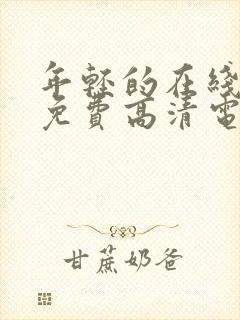 年轻的在线
免费高清电
甘蔗奶爸